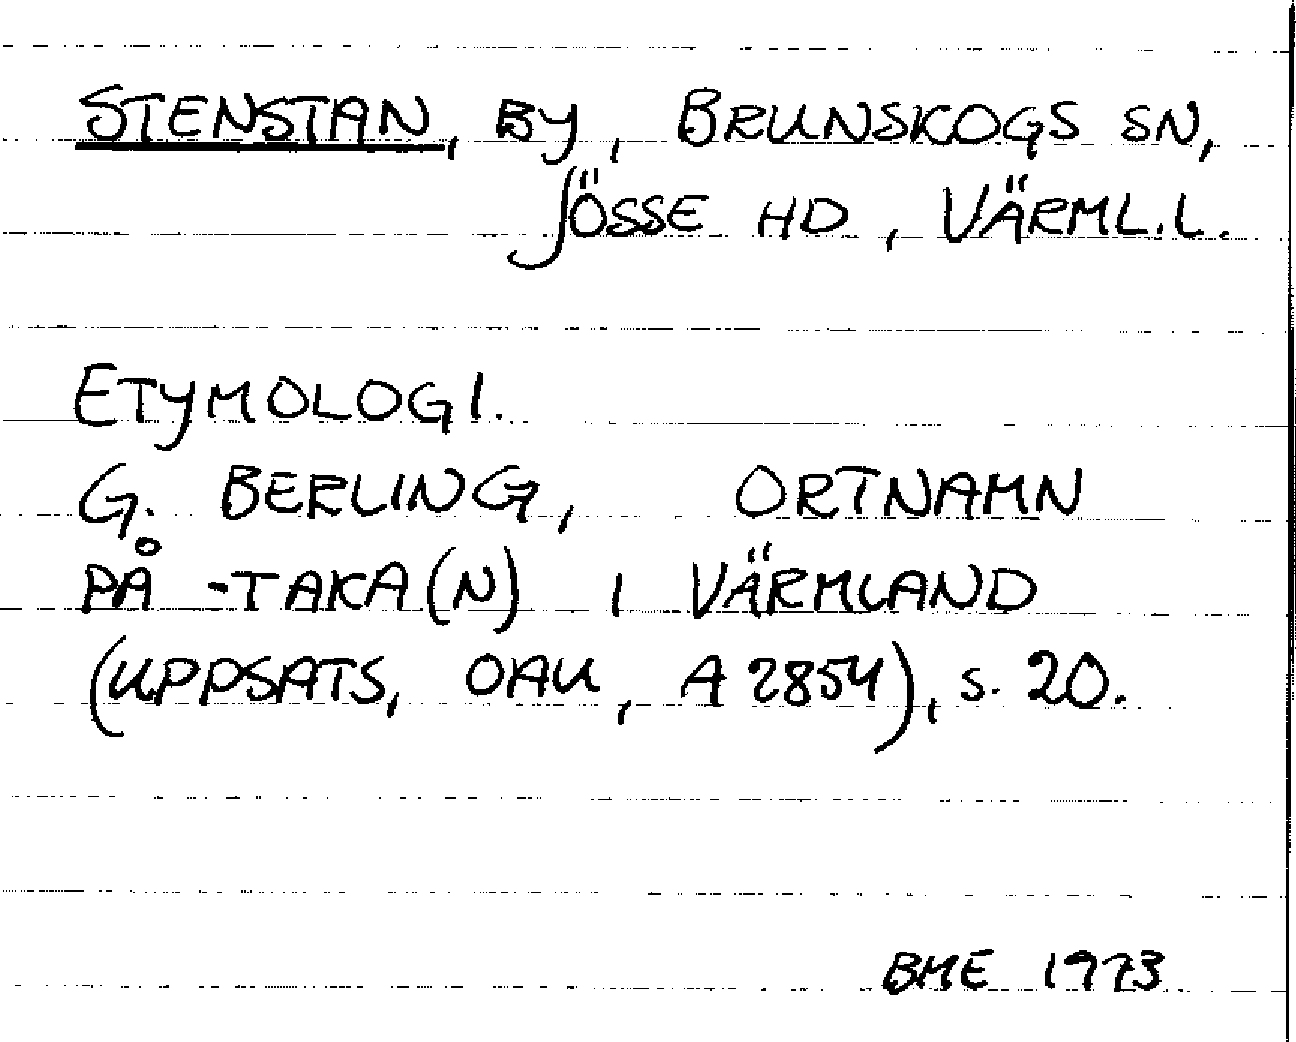 STENSTAN, BY, BRUNSKOGS SN,
JÖSSE HD, VÄRML.L.
ETYMOLOGI.
G. BERLING, ORTNAMN
PÅ -TAKA(N) I VÄRMLAND
(UPPSATS, OAU, A 2854), s. 20.
BME 1973